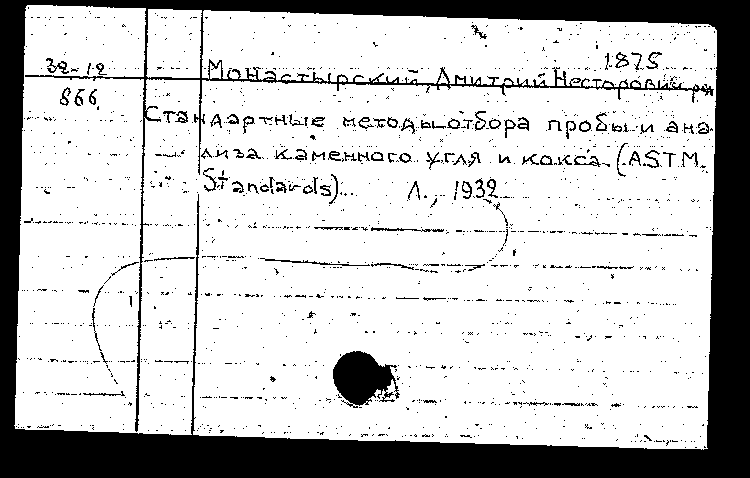 1875
32-12
Монастырский, Дмитрий Несторович, ред.
866
Стандартные методы отбора пробы и ана-
лиза каменного угля и кокса. (ASTM.
Standards). Л., 1932